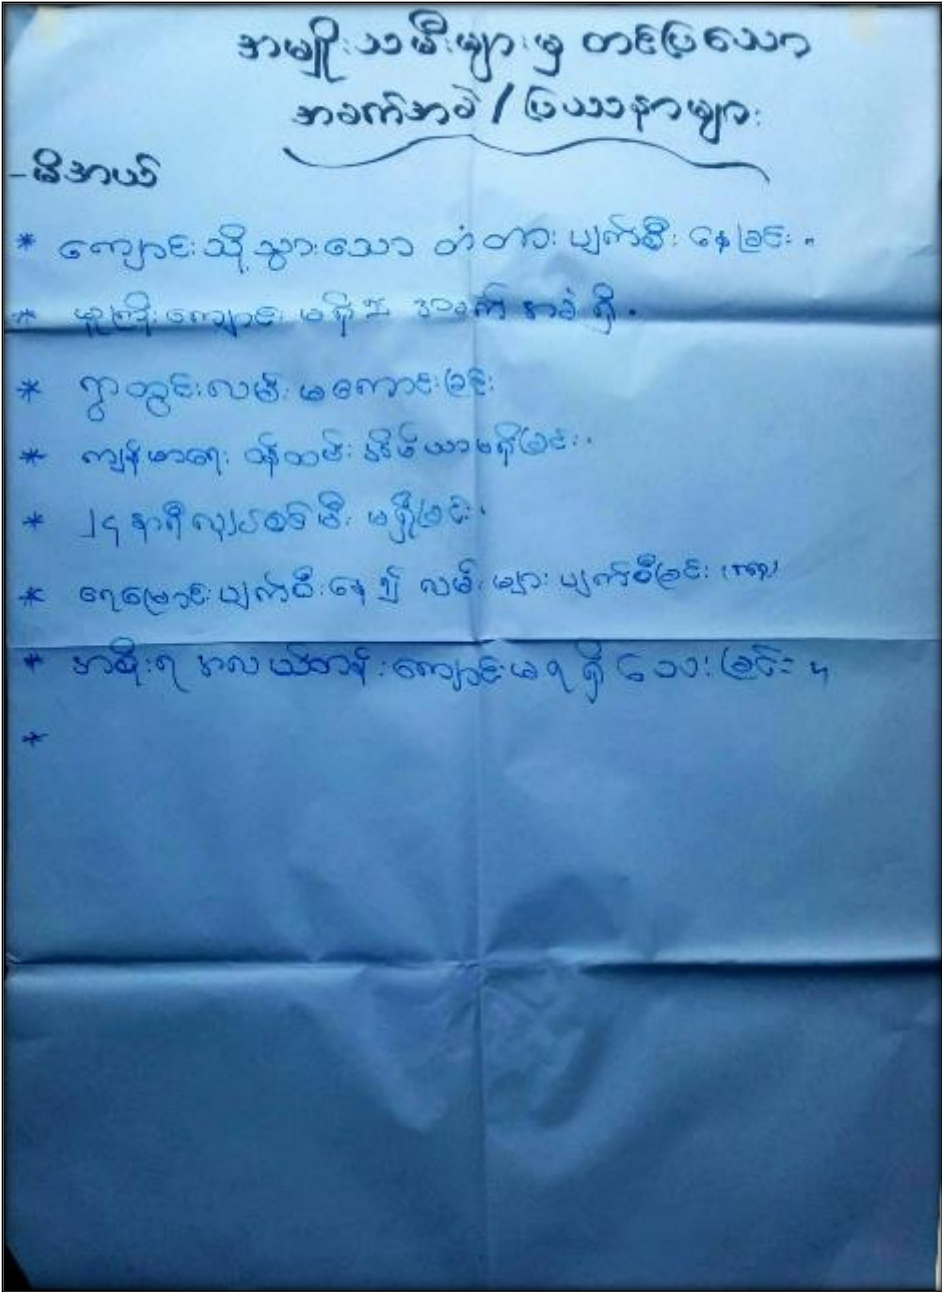 အမျိုးသမီးများမှ တင်ပြသော
အခက်အခဲ / ပြဿနာများ
- မီအယ်
* ကျောင်းသို့သွားသော တံတား ပျက်စီး နေခြင်း ။
* မူကြိုကျောင်း မရှိ၍ အခက် အခဲ ရှိ ။
* ရွာတွင်းလမ်း မကောင်းခြင်း
* ကျန်မာရေး ဝန်ထမ်း အိမ်ယာမရှိခြင်း ။
* ၂၄ နာရီ လျှပ်စစ်မီး မရှိခြင်း ။
* ရေမြောင်း ပျက်စီးနေ၍ လမ်းများ ပျက်စီးခြင်း
* အစိုးရ အလယ်တန်း ကျောင်းမရရှိသေးခြင်း ။
*